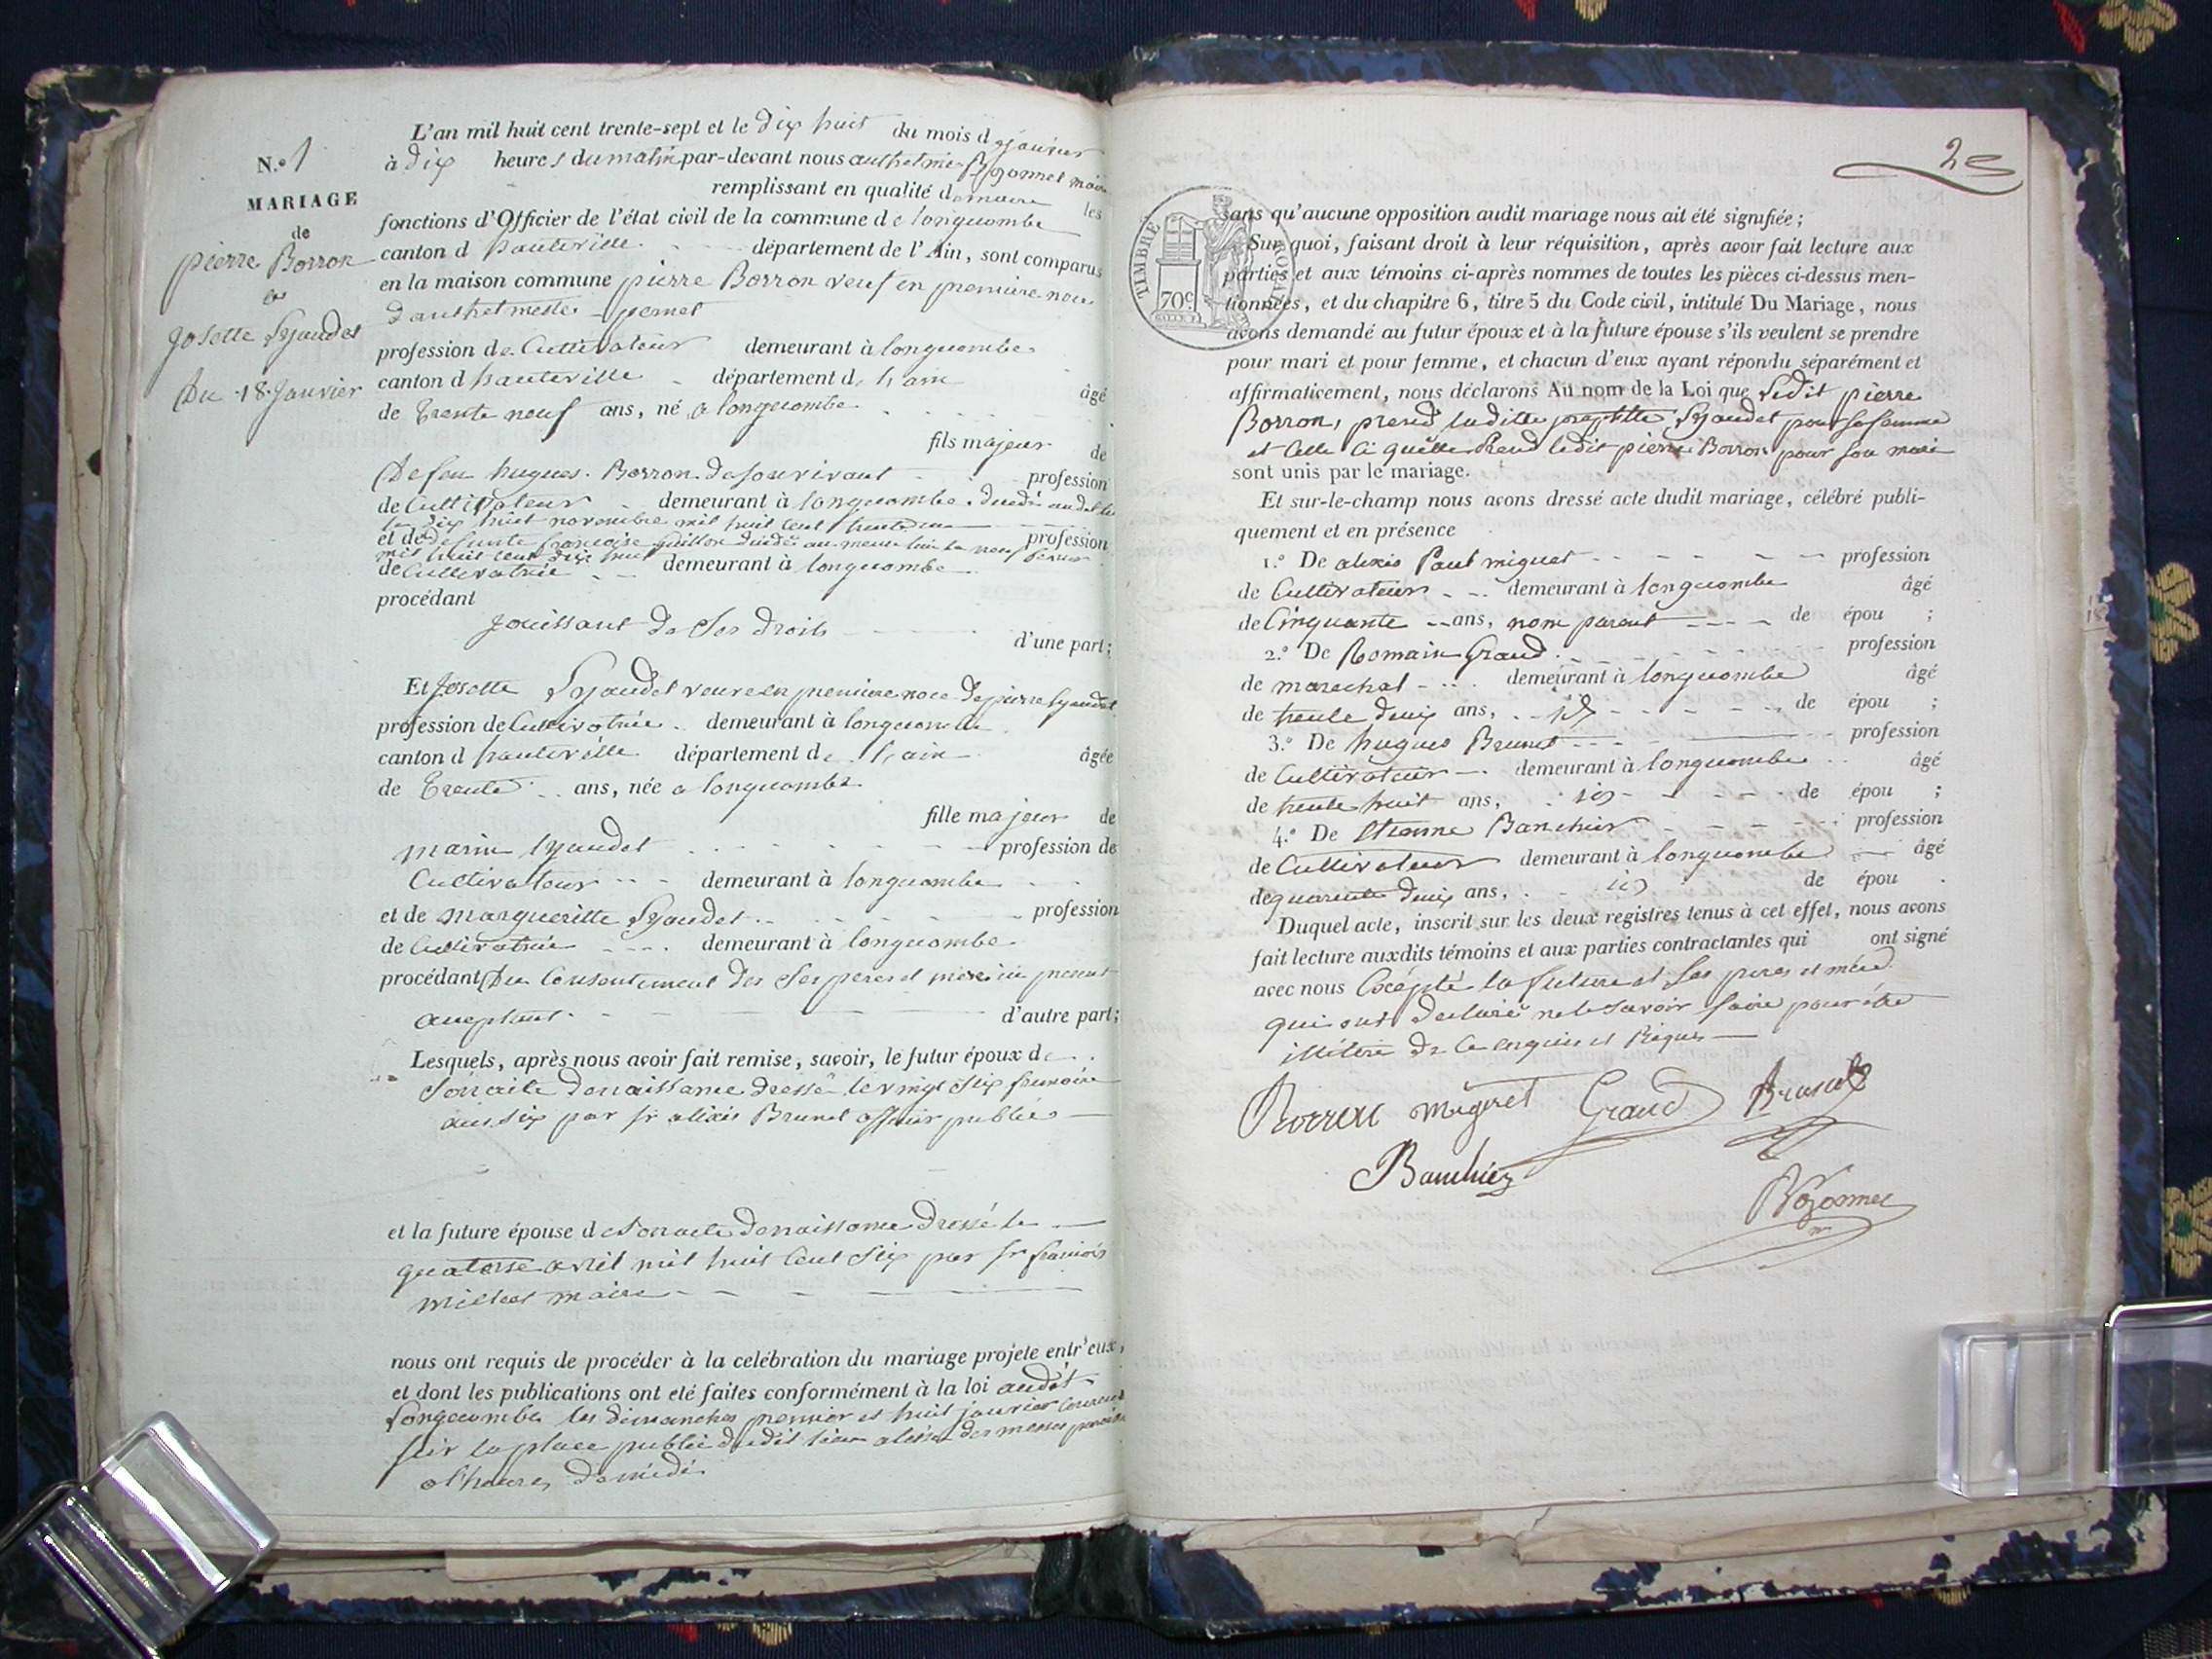 L'an mil huit cent trente-sept et le dix huit du mois de janvier
à dix heures du matin par-devant nous anthelme Rozonnet maire
remplissant en qualité de maire les
fonctions d'Officier de l'état civil de la commune de longecombe
canton d hauteville département de l'Ain, sont comparus
en la maison commune pierre Borron veuf en première noce
d'anthelmette pernet
profession de Cultivateur demeurant à longecombe
canton d hauteville département de l'ain âgé
de trente neuf ans, né a longecombe
fils majeur de
De feu hugues Borron de son vivant profession
de Cultivateur demeurant à longecombe
le dix huit novembre mil huit cent
et de defunte françoise Guillon profession
mil huit cent dix huit
de Cultivatrice demeurant à longecombe
procédant
jouissant de ses droits
d'une part;
Et Josette Lyaudet veuve en première noce de pierre Lyaudet
profession de Cultivatrice demeurant à longecombe
canton d hauteville département de l'ain âgée
de trente ans, née a longecombe
fille majeur de
marin lyaudet profession de
Cultivateur demeurant à longecombe
et de margueritte Lyaudet profession
de Cultivatrice demeurant à longecombe
procédant Du Consentement des ses pères et mère ici present
aceptant d'autre part;
Lesquels, après nous avoir fait remise, savoir, le futur époux de
Son acte de naissance dressé le vingt six
an six par sr alexis Brunet officier public
et la future épouse de Son acte de naissance dressé le
quatorse avril mil huit Cent Six par sr francois
millet maire
nous ont requis de procéder à la celébration du mariage projete entr'eux,
et dont les publications ont eté faites conformément à la loi audit
Longecombe les dimanches premier et huit janvier Courent
sur la place public dudit lieu
a l'heure de midi
N.º 1
MARIAGE
de
pierre Borron
et
Josette Lyaudet
Du 18 Janvier
2
TIMBRE ROYAL
70c
sans qu'aucune opposition audit mariage nous ait été signifiée;
Sur quoi, faisant droit à leur réquisition, après avoir fait lecture aux
parties et aux témoins ci-après nommes de toutes les pièces ci-dessus men-
tionnées, et du chapitre 6, titre 5 du Code civil, intitulé Du Mariage, nous
avons demandé au futur époux et à la future épouse s'ils veulent se prendre
pour mari et pour femme, et chacun d'eux ayant répondu séparément et
affirmativement, nous déclarons Au nom de la Loi que Ledit pierre
Borron, prend laditte josephtte Lyaudet pour sa femme
et Celle Ci quelle Prend ledit pierre Borron pour son mari
sont unis par le mariage.
Et sur-le-champ nous avons dressé acte dudit mariage, célébré publi-
quement et en présence
1.º De alexis Paul miguet profession
de Cultivateur demeurant à longecombe âgé
de Cinquante ans, nom parent de épou ;
2.º De Romain Graud profession
de marechal demeurant à longecombe âgé
de trente deux ans, id de épou ;
3.º De hugues Brunet profession
de Cultivateur demeurant à longecombe âgé
de trente huit ans, id de épou ;
4.º De Etienne Banchier profession
de Cultivateur demeurant à longecombe âgé
de quarente deux ans, id de épou
Duquel acte, inscrit sur les deux registres tenus à cet effet, nous avons
fait lecture auxdits témoins et aux parties contractantes qui ont signé
avec nous Excépté la future et Ses peres et mére
qui ont declaré ne le Savoir faire pour être
illétéré De Ce enquis et Requis
Borron miguet Graud Brunet
Banchier
Rozonnet